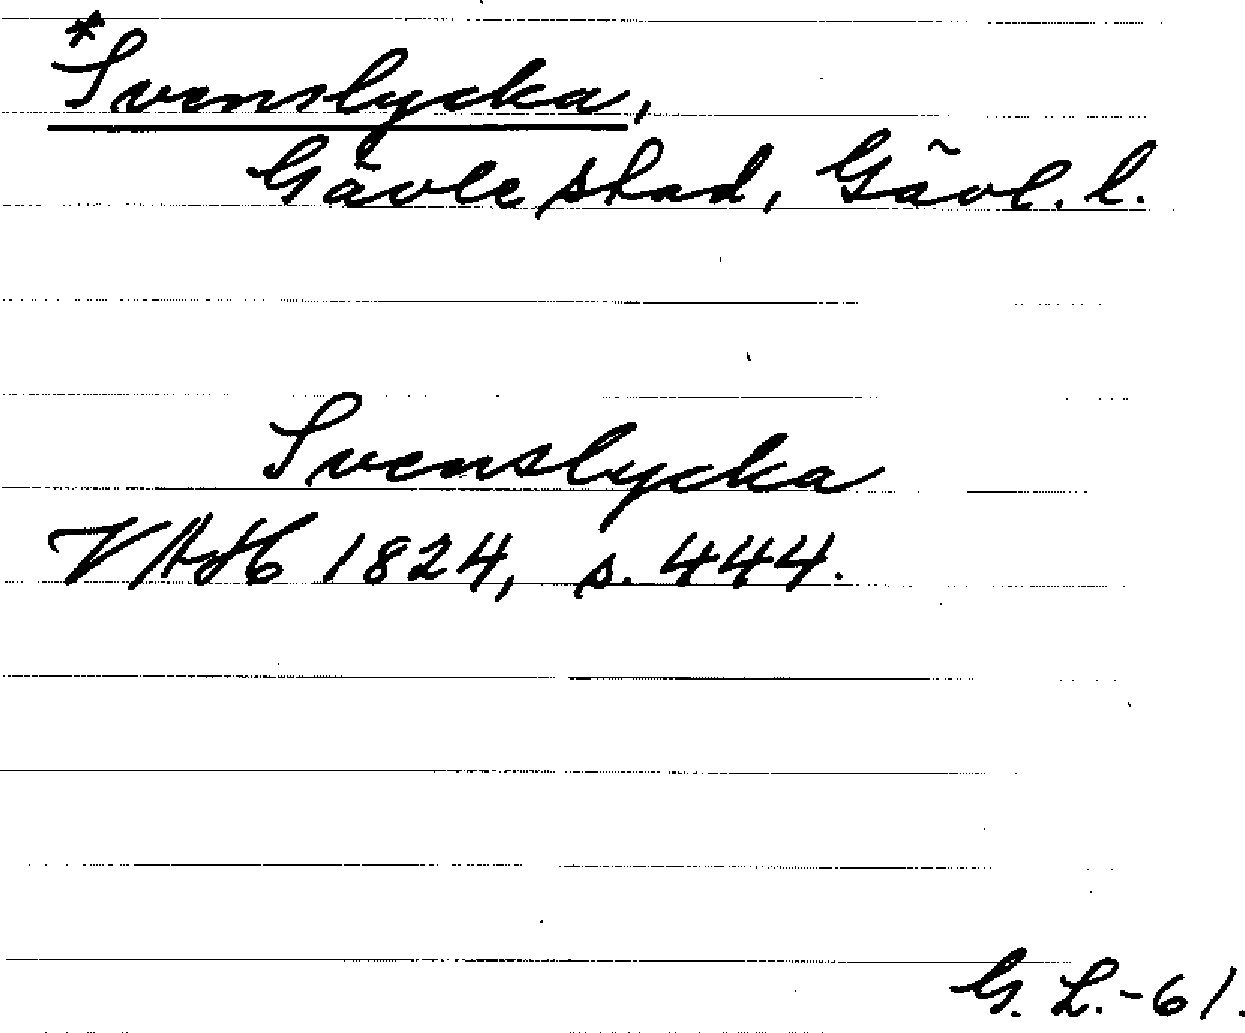 *Svenslycka,
Gävle stad, Gävl. l.
Svenslycka
VAH 1824, s. 444.
G. L. - 61.